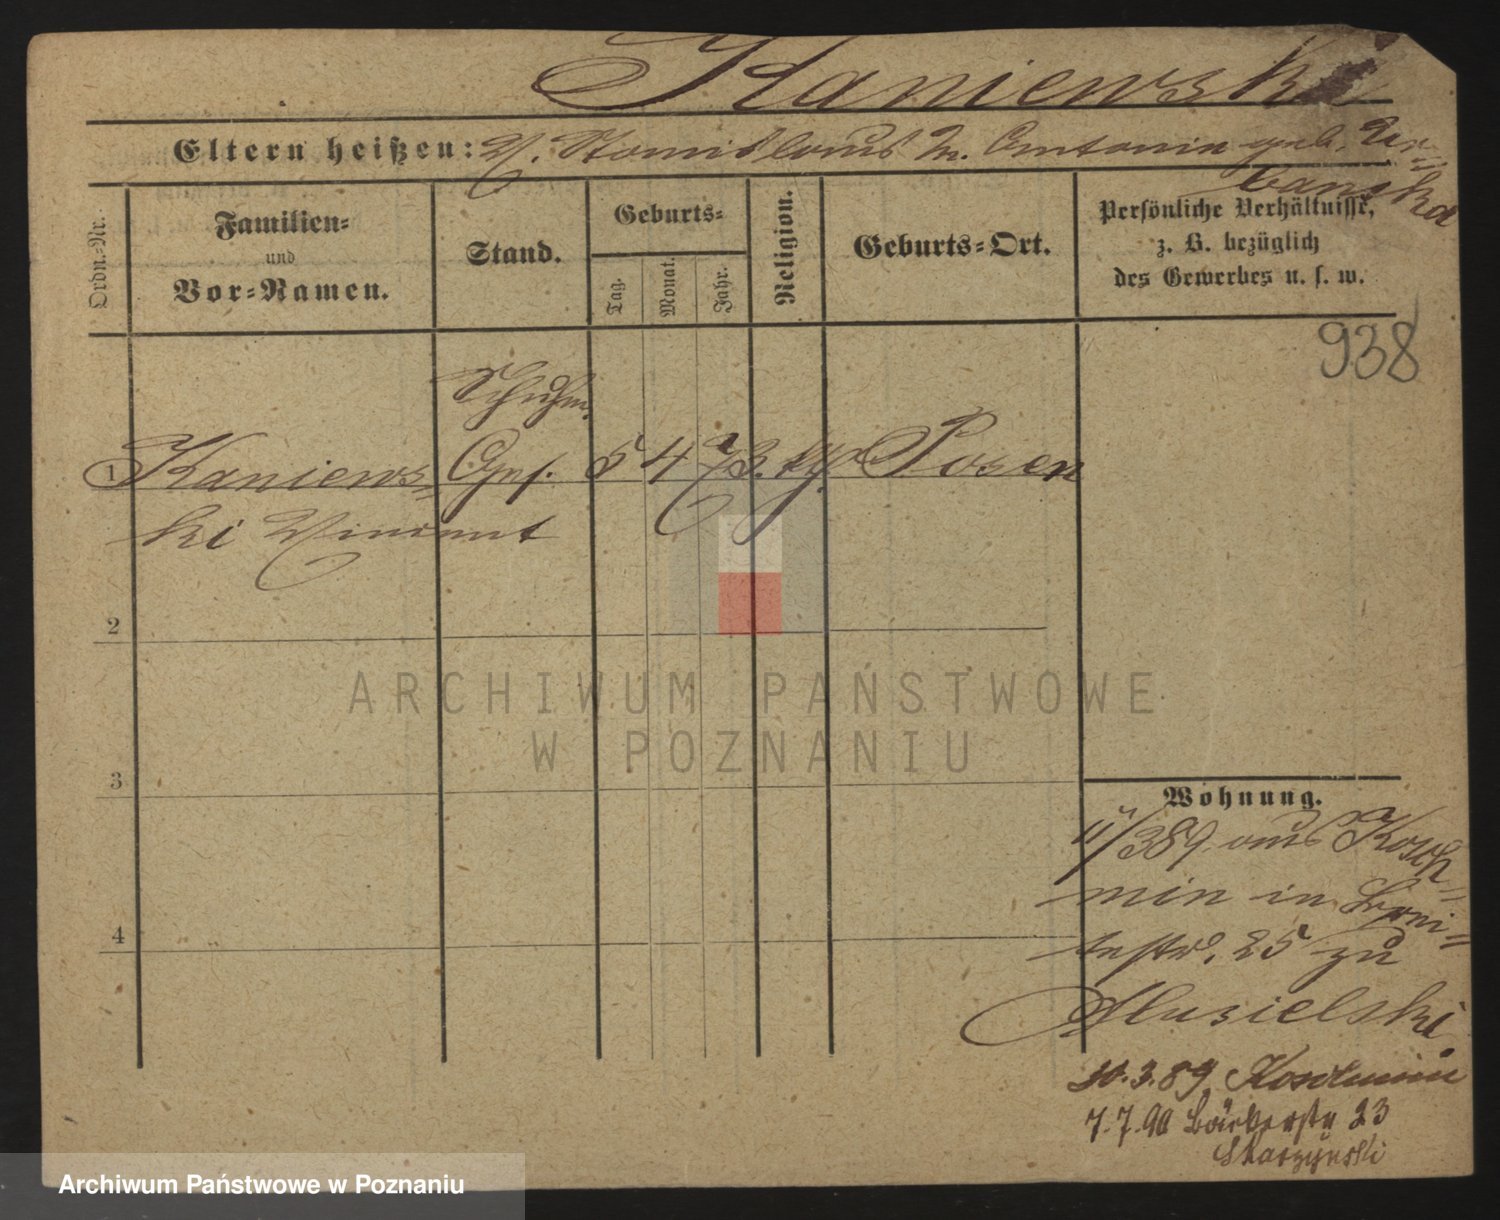 Kaniewski
Eltern heißen: V. Stanislaus M. Antonin geb. Ur=
banska
Ordn.=Nr.
Familien=
und
Vor=Namen.
Stand.
Geburts=
Tag.
Monat.
Jahr.
Religion.
Geburts=Ort.
Persönliche Verhältnisse,
z. B. bezüglich
des Gewerbes u. s. w.
938
Schuhm.
1 Kaniews= Ges. 5 4 73. kg. Posen
ki Vincent
2
3
4
ARCHIWUM PAŃSTWOWE
W POZNANIU
Wohnung.
11/3 89. aus Kosch=
min in Breite=
str. 25 zu
Musielski
30.3.89 Koschmin
7.7.90 Bäckerstr 23
Skarzynski
Archiwum Państwowe w Poznaniu